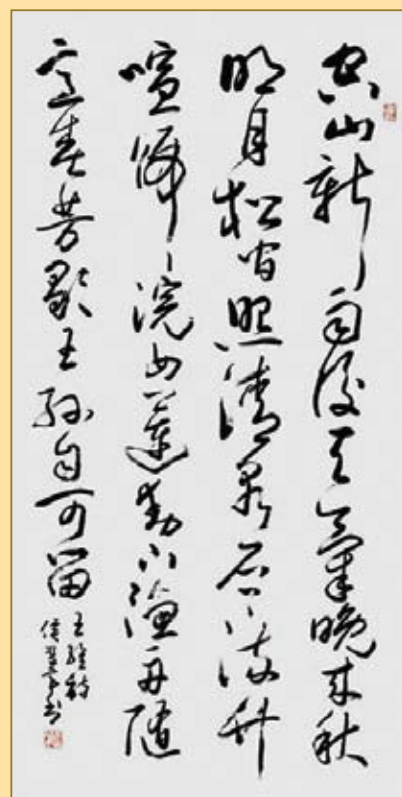 空山新雨後天氣晚來秋
明月松間照清泉石上流竹
喧歸浣女蓮動下漁舟隨
意春芳歇王孫自可留
王維詩
書